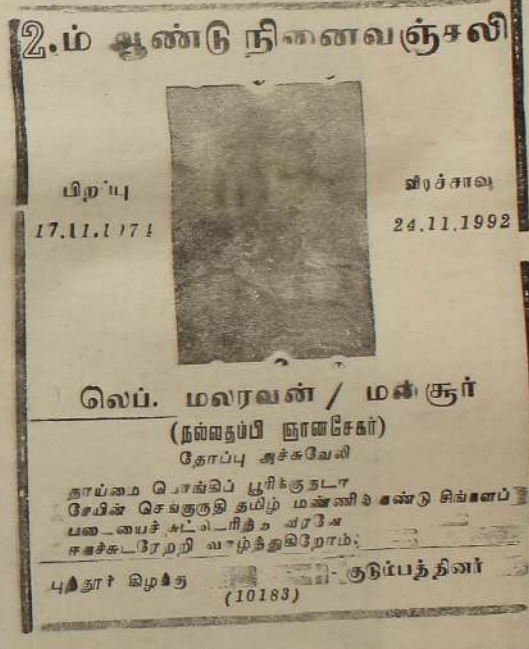 2.ம் ஆண்டு நினைவஞ்சலி
பிறப்பு
17.11.1974
வீரச்சாவு
24.11.1992
லெப். மலரவன் / மன்சூர்
(நல்லதம்பி ஞானசேகர்)
தோப்பு அச்சுவேலி
தாய்மை பொங்கிப் பூரிக்குதடா
சேயின் செங்குருதி தமிழ் மண்ணில் கண்டு சிங்களப்
படையைச் சுட்டெரித்த வீரனே
ஈகச்சுடரேற்றி வாழ்த்துகிறோம்;
புத்தூர் கிழக்கு குடும்பத்தினர்
(10183)